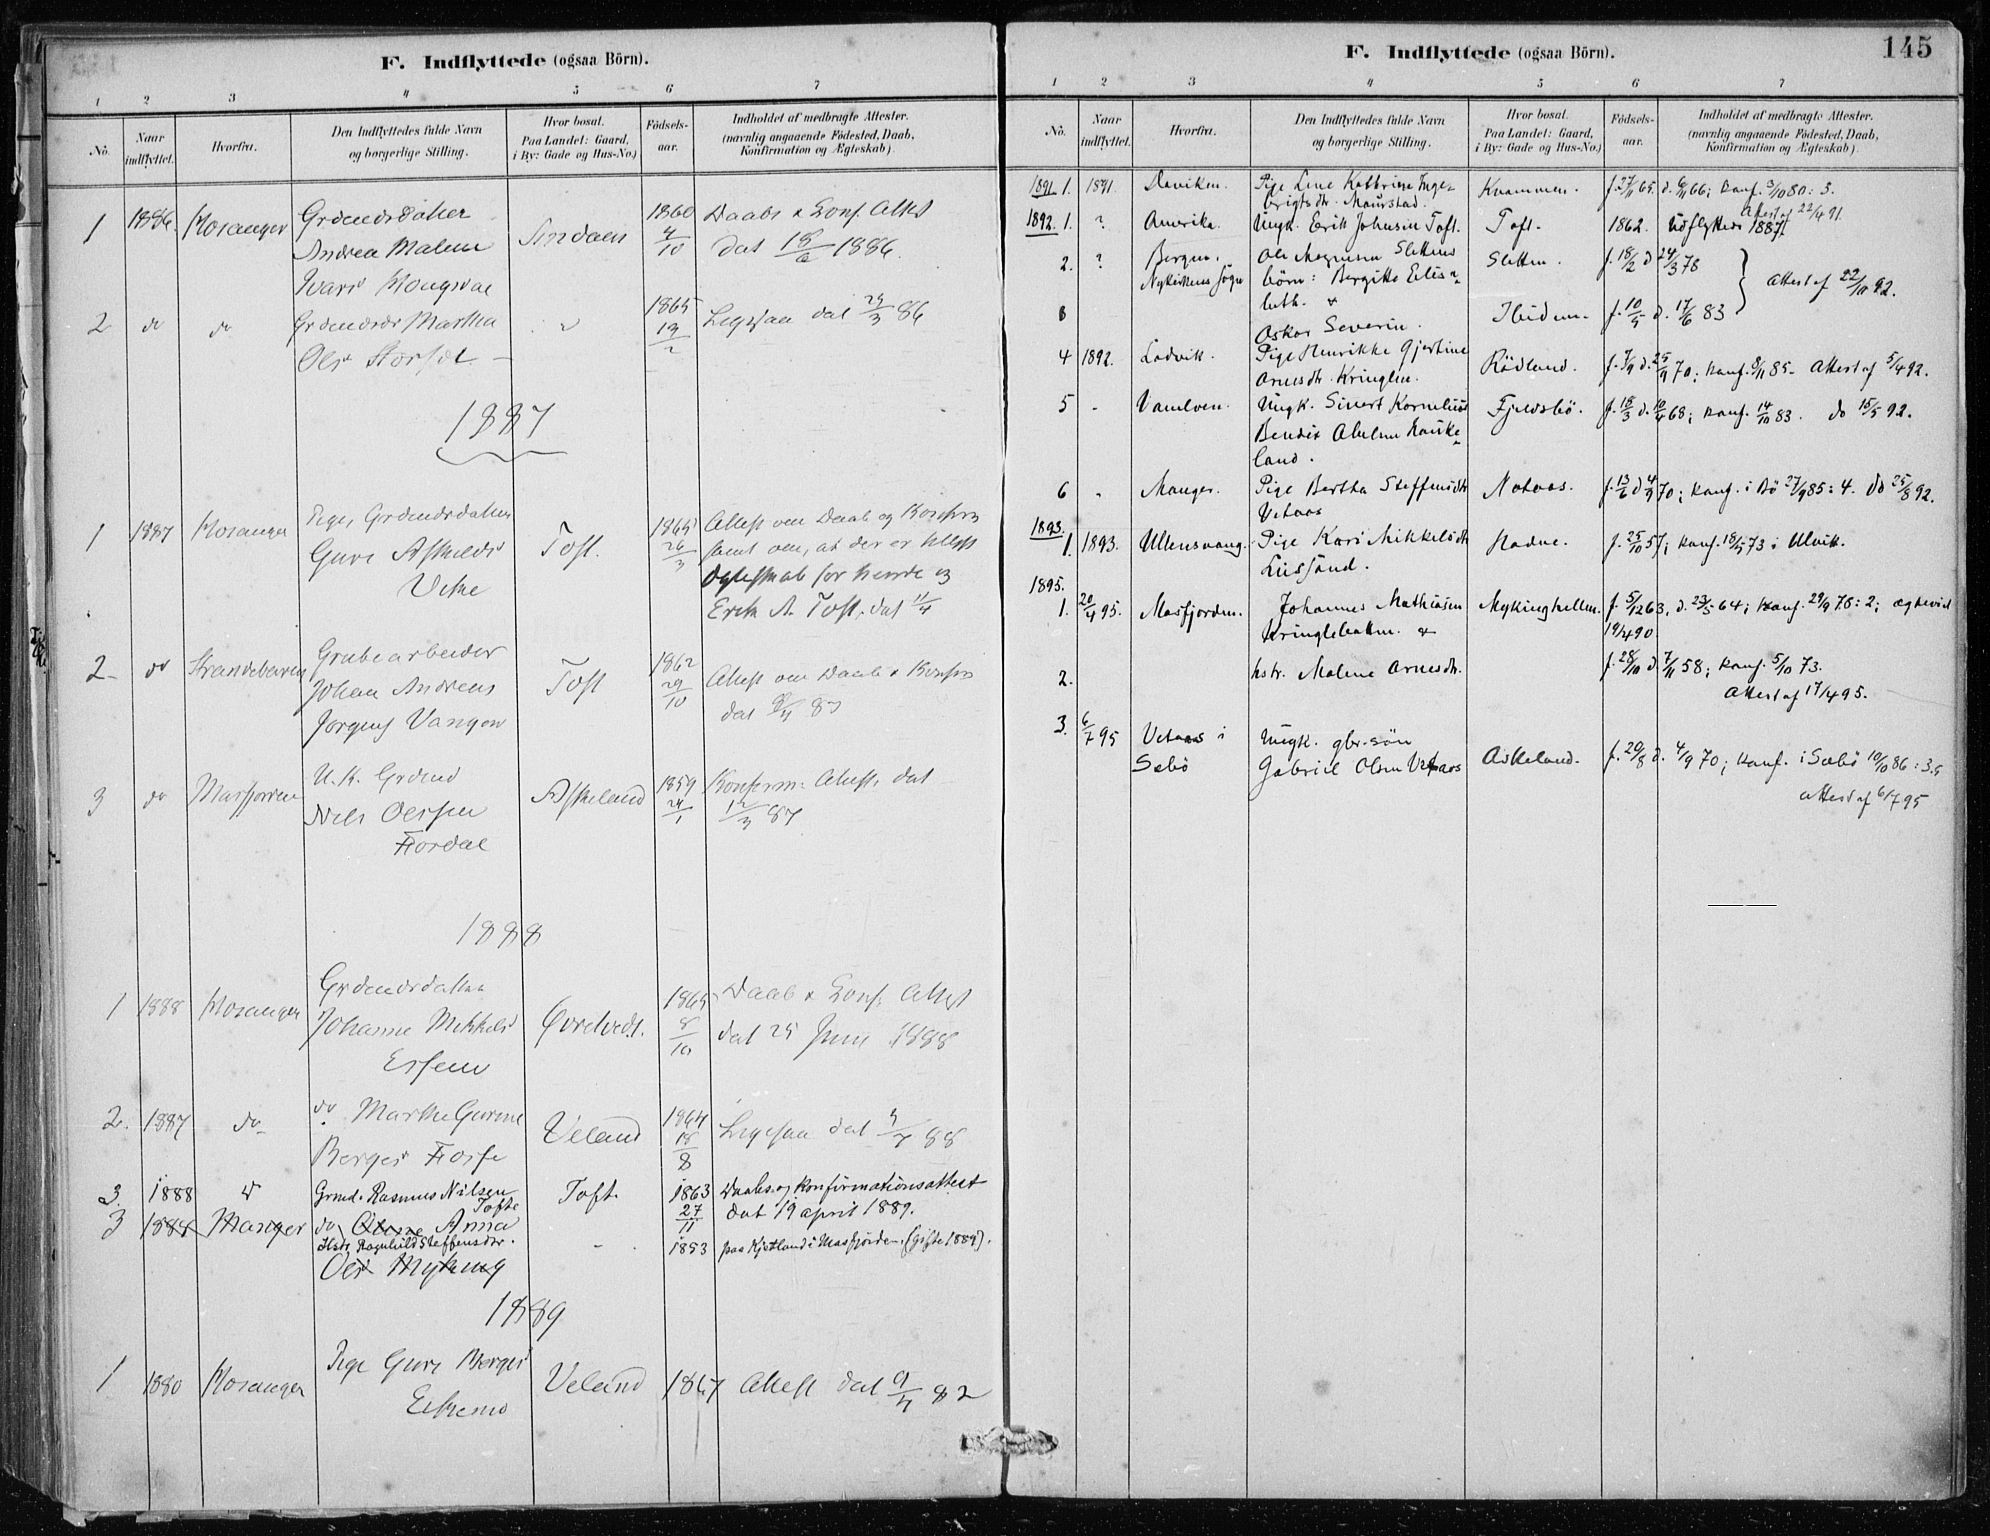 F. Indflyttede (ogsaa Börn).
1 2 3 4 5 6 7
No.
Naar indflyttet.
Hvorfra.
Den Indflyttedes fulde Navn
og borgerlige Stilling.
Hvor bosat.
Paa Landet: Gaard,
i By: Gade og Hus-No.)
Födsels-
aar.
Indholdet af medbragte Attester.
(navnlig angaaende Födested, Daab,
Konfirmation og Ægteskab).
1 1886 Hosanger Grdmdsdatter 1860 Daabs & Conf. Attest
Andrea Malene 4/10 dat 18/6 1886.
Ivarsd
2 do do Grdmdsdr Martha 1865 Ligesaa dat 29/3 86
Olsd 13/2
1887
1 1887 Hosanger Pige, Grdmdsdatter Toft. 1865 Attest om Daab og Konfirm
Guri Askildsd 26/3 samt om, at der er lyst
Ægteskab for hende og
Erik A. Toft, dat 11/4
2 do Strandebarm Grubearbeider Toft 1862 Attest om Daab & Konfirm
Johan Andreas 29/10 dat
Jörgens Vangen
3 do Masfjorden U.K. Grdmd Askeland 1859 Konfirm. Attest, dat
Nils Olssen 24/1 12/3 87
Fjordal
1888
1 1888 Hosanger Grdmdsdatter 1865 Daab & Conf. Attest
Johanne Mikkelsd 8/10 dat 25 Juni 1888
2. 1887 do do Marthe Gurine Veland 1864 Ligesaa dat 88
Bergesd Fosse 18/8
3 1888 Grmd. Rasmus Nilsen Toft. 1863 Daabs og Konfirmationsattest
Tofte 27/11 dat 19 april 1889.
3 1888 Manger do Anna
Hstr. Ragnhild Steffensdtr. 1853 paa Kjetland i Masfjorden. (gifte 1889).
Olsd Myking
1889
1 1880 Hosanger Pige Guri Bergesd Veland 1867 Attest dat 82
F. Indflyttede (ogsaa Börn). 145
1 2 3 4 5 6 7
No.
Naar indflyttet.
Hvorfra.
Den Indflyttedes fulde Navn
og borgerlige Stilling.
Hvor bosat.
Paa Landet: Gaard,
i By: Gade og Hus-No.)
Födsels-
aar.
Indholdet af medbragte Attester.
(navnlig angaaende Födested, Daab,
Konfirmation og Ægteskab).
1891. 1. 1891. Daviken. Pige Line Kathrine Inge- Kvammen. f. 27/11 65. d. 6/11 66; Konf. 3/10 80: 3.
brigtsdtr. Maurstad. Attest af 22/4 91.
1892. 1. ? Amerika. Ungk. Erik Johnsen Toft. Toft. 1862. Udflyttede 1887.
2. ? Bergen, Ole Magnussen Slettens Sletten. f. 18/2 d 24/3 78
Nykirkens Sogn börn: Bergitte Elisa-
beth. & Attest af 22/10 92.
3 Oskar Severin. Ibidem. f. 10/5 d. 17/6 83
4 1892. Ladvik. Pige Henrikke Gjertine Rödland. f. 7/9 d. 25/9 70; Konf. 8/11 85. Attest af 5/4 92.
Arnesdtr. Kringlen.
5 - Vanelven. Ungk. Sivert Kornelius Fjeldsbö. f. 18/3 d. 10/4 68; Konf. 14/10 83. do 15/5 92.
Bendix Abelsen Hauke-
land.
6 - Manger. Pige Bertha Steffensdtr Notaas. f. 13/2 d 4/9 70; Konf. i Bö 27/9 85: 4. do 25/8 92.
Vetaas
1893.
1. 1893. Ullensvang. Pige Kari Mikkelsdtr Hadne. f. 25/10 57; Konf. 18/5 73 i Ulvik.
Lussand.
1895.
1. 20/4 95. Masfjorden. Johannes Mathiasen Mykinghellen. f. 5/12 63, d. 23/5 64; Konf. 29/9 78: 2; ægteviet
Kringlebotten. & 19/4 90.
2. hstr. Malene Arnesdtr. f. 28/10 d. 7/11 58; Konf. 5/10 73.
Attest af 17/4 95.
3. 6/7 95 Vetaas i Ungk. gbr.-sön
Sæbö Gabriel Olsen Vetaas Askeland. f. 20/8 d. 4/9 70; Konf. i Sæbö 10/10 86: 3.5
attest af 6/7 95